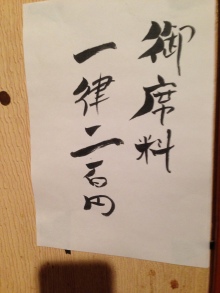 御席料
一律二百円